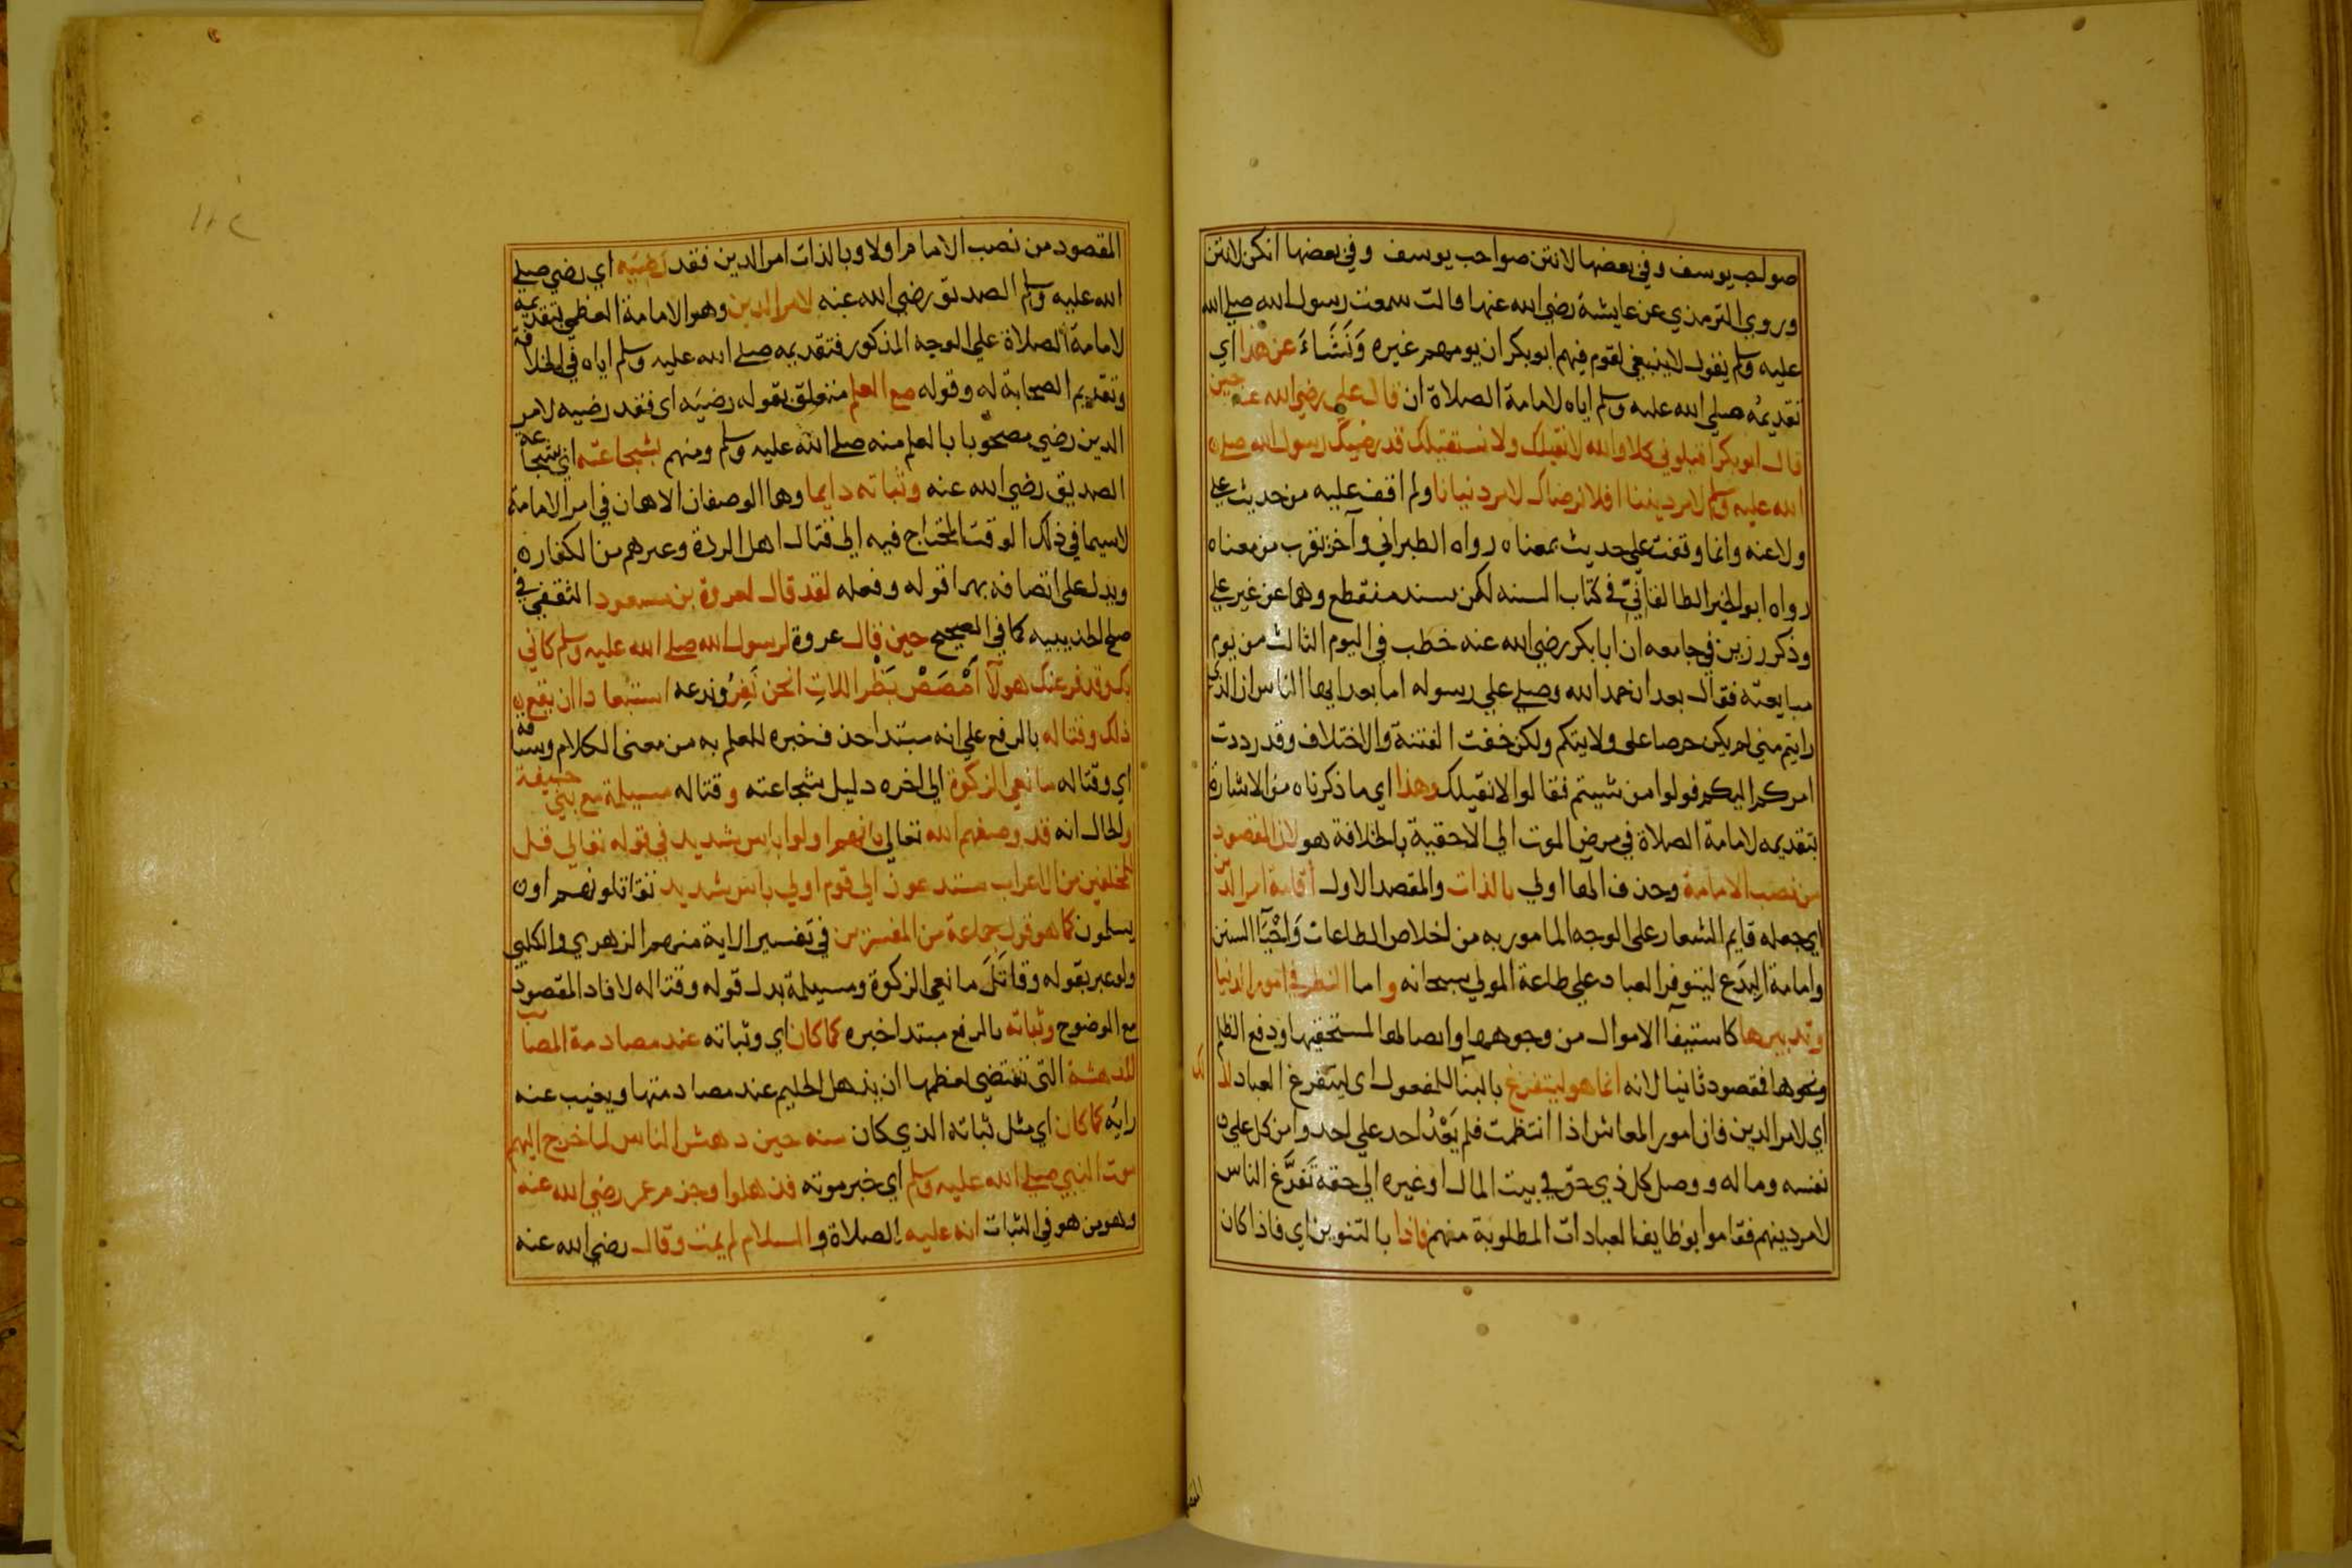 صواحب يوسف وفي بعضها لانتن صواحب يوسف وفي بعضها انكن لانتن
وروي الترمذي عن عايشة رضي الله عنها قالت سمعت رسول الله صلي الله
عليه وسلم يقول لا ينبغي لقوم فيهم ابو بكر ان يومهم غيره وَنَشَاءَ عن هذا اي
تقديمُه صلي الله عليه وسلم اياه لامامة الصلاة ان قال علي رضي الله عنه حين
قال ابو بكر اقيلوني كلا والله لا نقيلك ولا نستقيلك قد رضيك رسول الله صلي
الله عليه وسلم لامر ديننا افلا نرضاك لامر دنيانا ولم اقف عليه من حديث علي
ولا عنه وانما وقفت علي حديث بمعناه رواه الطبراني وآخر يقرب من معناه
رواه ابو الخير الطالقانيّ في كتاب السنه لكن بسند منقطع وهما عن غير علي
وذكر رزين في جامعه ان ابا بكر رضي الله عنه خطب في اليوم الثالث من يوم
مبايعته فقال بعد ان حمد الله وصلي علي رسوله اما بعد ايها الناس ان الذي
رايتم مني لم يكن حرصا علي ولايتكم ولكن خفت الفتنة والاختلاف وقد رددت
امركم اليكم فولوا من شيتم فقالوا لا نقيلك وهذا اي ما ذكرناه من الاشارة
بتقديمه لامامة الصلاة في مرض الموت الي الاحقية بالخلافة هو لان المقصود
من نصب الامامة وحذف الها اولي بالذات والمقصد الاول اقامة امر الدين
اي جعله قايم الشعار علي الوجه المامور به من اخلاص الطاعات وَاِحْيَآ السنن
وامامة البِدَع ليتوفر العباد علي طاعة المولي سبحانه واما النظر في امور الدنيا
وتدبيرها كاستيفآ الاموال من وجوهها وايصالها لمستحقيها ودفع الظلم
ونحوها فمقصود ثانيا لانه انما هو ليتفرغ بالبنآ للمفعول اي ليتفرغ العباد لذلك
اي لامر الدين فان امور المعاش اذا انتظمت فلم يَعْدُ احد علي احد وامن كل علي
نفسه وماله ووصل كل ذي حق في بيت المال او غيره الي حقه تَفَرَّغ الناس
لامر دينهم فقاموا بوظايف العبادات المطلوبة منهم فاذا بالتنوين اي فاذا كان
المقصود من نصب الامام اولا وبالذات امر الدين فقد رضيَه اي رضي صلي
الله عليه وسلم الصديق رضي الله عنه لامر الدين وهو الامامة العظمي بتقديمه
لامامة الصلاة علي الوجه المذكور فتقديمه صلي الله عليه وسلم اياه في الخلافة
وتقديم الصحابة له وقوله مع العلم متعلق بقوله رضيَه اي فقد رضيه لامر
الدين رضي مصحوبا بالعلم منه صلي الله عليه وسلم ومنهم بشجاعته اي شجاعة
الصديق رضي الله عنه وثباته دايما وهما الوصفان الاهمان في امر الامامة
لاسيما في ذلك الوقت المحتاج فيه الي قتال اهل الردة وغيرهم من الكفار
ويدل علي اتصافه بهما قوله وفعله لقد قال لعروة بن مسعود الثقفي في
صلح الحديبيه كما في الصحيح حين قال عروة لرسول الله صلي الله عليه وسلم كاني
بك وقد فر عنك هولآ اُمْصُصْ بَظْر اللاتِ انحن نَفِرُ وندعه استبعادا ان يقع
ذلك وقتاله بالرفع علي انه مبتدا حذف خبره للعلم به من معني الكلام وسياقه
اي وقتاله مانعي الزكوة الي اخره دليل شجاعته وقتاله مسيلمة مع بني حنيفة
والحال انه قد وصفهم الله تعالي بانهم اولوا باس شديد في قوله تعالي قل
للمخلفين من الاعراب ستدعون الي قوم اولي باس شديد تقاتلونهم او
يسلمون كما هو قول جماعة من المفسرين في تفسير الاية منهم الزهري والكلبي
ولو عبر بقوله وقاتَلَ مانعي الزكوة ومسيلمة بدل قوله وقتاله لافاد المقصود
مع الوضوح وثباته بالرفع مبتدا خبره كما كان اي وثباته عند مصادمة المصايب
المدهشة التي تقتضي لعظمها ان يذهل الحليم عند مصادمتها ويغيب عنه
رايُه كما كان اي مثل ثباته الذي كان منه حين دهش الناس لما خرج اليهم
موت النبي صلي الله عليه وسلم اي خبر موته فذهلوا وجزم عمر رضي الله عنه
وهو من هو في الثبات انه عليه الصلاة والسلام لم يمت وقال رضي الله عنه